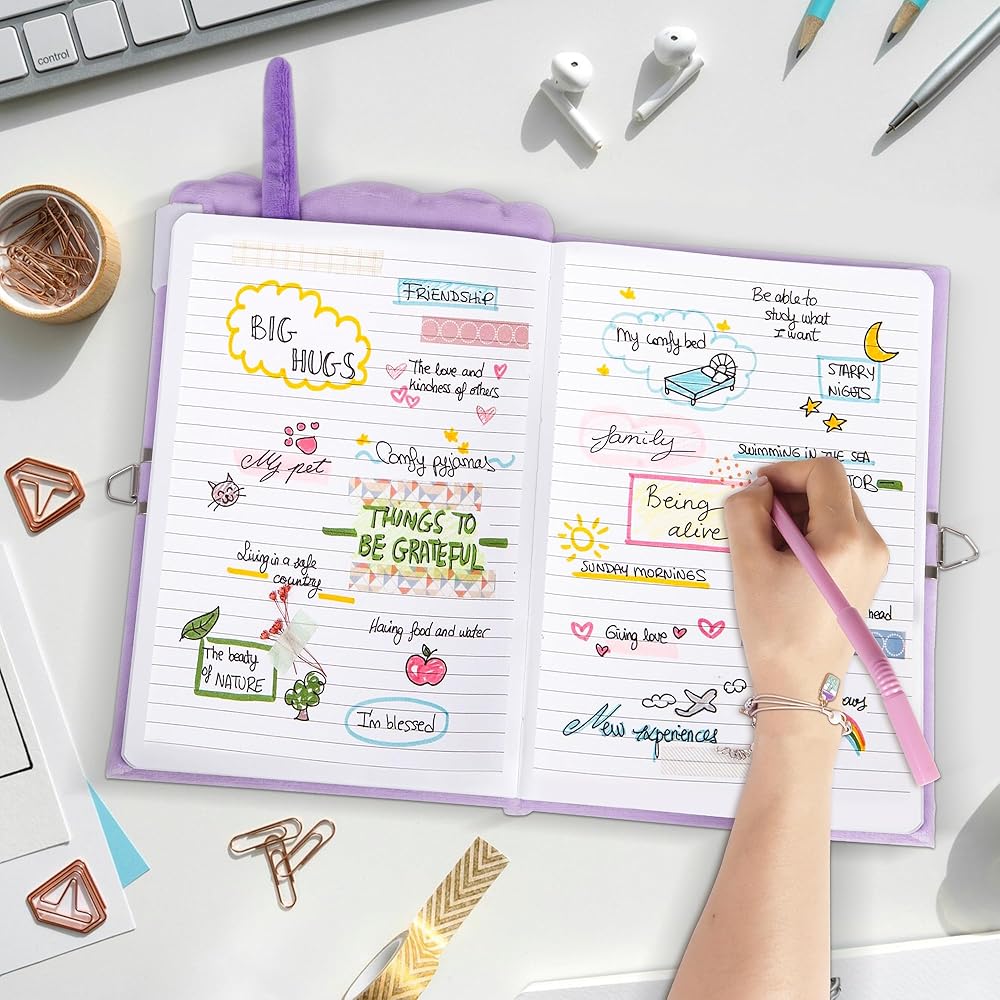 control
FRIENDSHIP
BIG
HUGS
The love and
kindness of others
My pet
Comfy pyjamas
THINGS TO
BE GRATEFUL
Living in a safe
country
Having food and water
The beaty
of NATURE
I'm blessed
Be able to
study what
I want
My comfy bed
STARRY
NIGHTS
family
SWIMMING IN THE SEA
JOB
Being
alive
SUNDAY MORNINGS
Giving love
New experiences